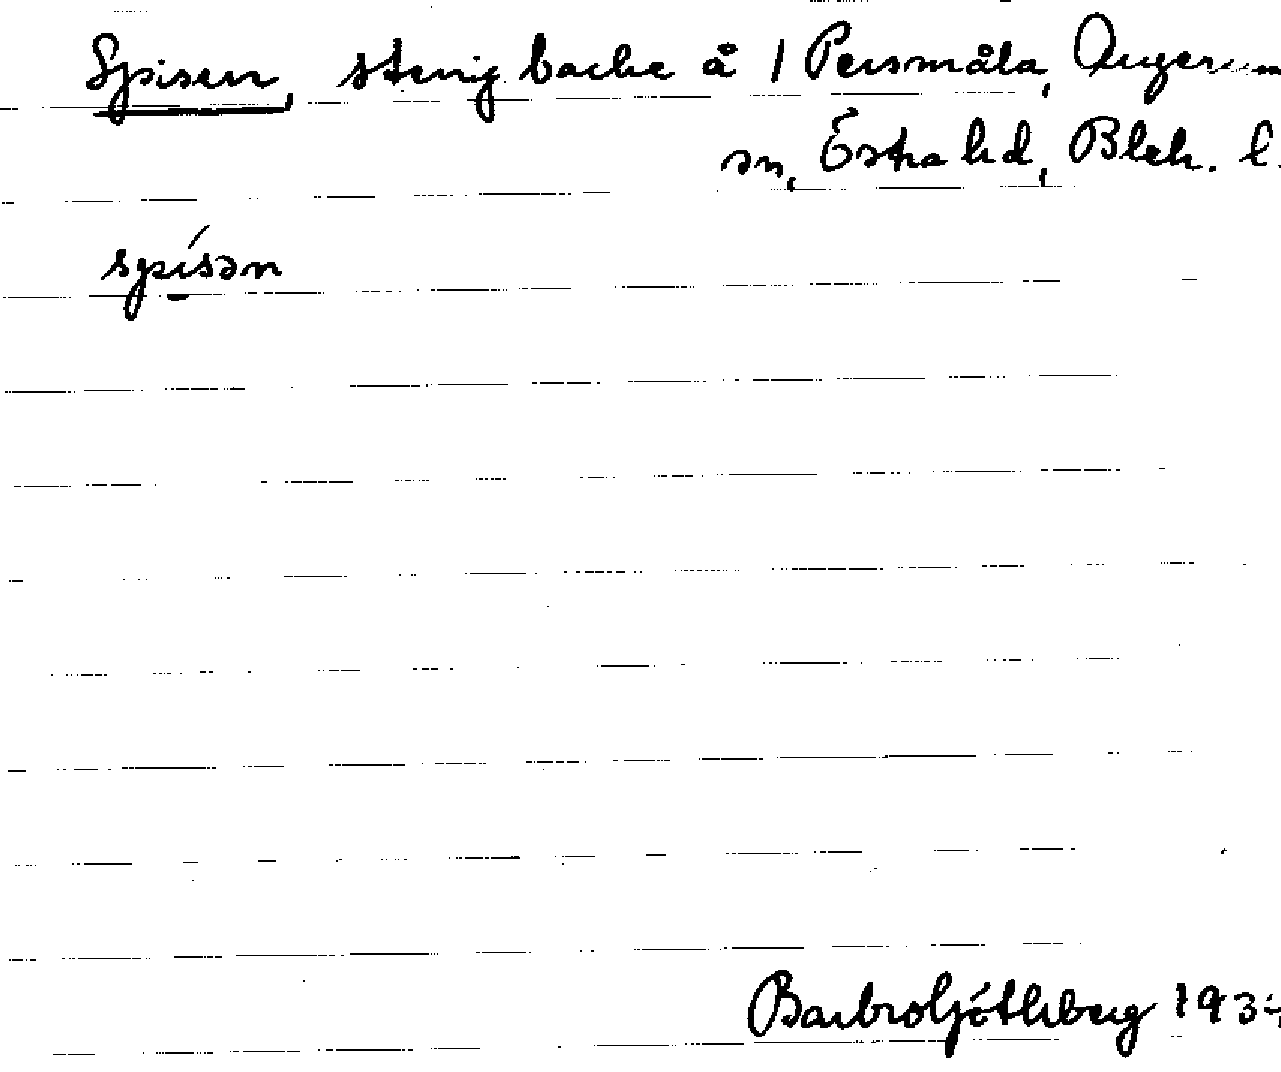 Spisen, stenig backe å 1 Persmåla, Augerum
sn, Östra hd, Blek. l.
spísən
Barbro Göthberg